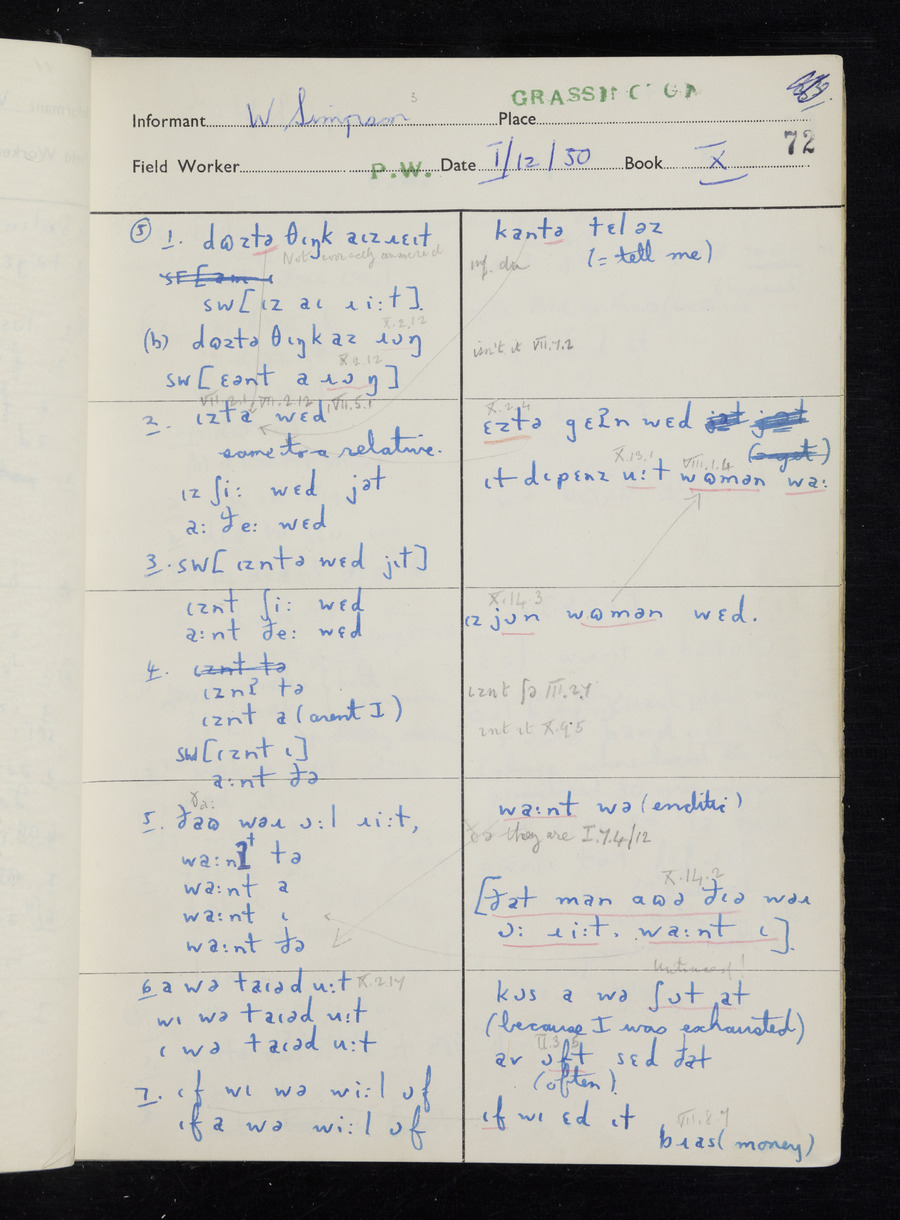 GRASSINGTON
Informant W Simpson Place
72
Field Worker P.W. Date 1/12/50 Book X
⑤ 1. dʊztə θɪŋk aɪz ɹɛɪt
Not correctly answered
sw[ɪz aɪ ɹi:t].
X.2.12
(b) dʊztə θɪŋk az ɹʊŋ
X.2.12
sw[ɛənt a ɹʊŋ]
VII.2.1/ VII.2.12, VII.5.1
2. ɪztə wɛd
same to a relative.
ɪz ʃi: wɛd jət
a: ðe: wɛd
3. sw[ɪzntə wɛd jɪt]
ɪznt ʃi: wɛd
a:nt ðe: wɛd
4. ɪznt tə
ɪznʔ tə
ɪznt a (arent I)
sw[ɪznt ɪ]
a:nt ðə
5. ðaʊ waɹ ɔ:l ɹi:t,
wa:nʔ tə
wa:nt a
wa:nt ɪ
wa:nt ðə
6 a wə taɪəd u:t X.2.14
wɪ wə taɪəd u:t
ɪ wə taɪəd u:t
7. ɪf wɪ wə wi:l ɒf
ɪf a wə wi:l ɒf
kantə tɛl əz
(= tell me)
isn't it VII.7.2
X.2.4
ɛztə gɛʔn wɛd
X.13.1 VIII.1.4
ɪt dɪpɛnz u:t wʊmən wa:
X.14.3
ɪz jʊn wʊmən wɛd.
ɪznt ʃə III.2.7
ɪnt ɪt X.9.5
wa:nt wə (enclitic)
they are I.7.4/12
X.14.2
[ðat man aʊə ðɪə waɹ
ɔ: ɹi:t, wa:nt ɪ].
kɒs a wə ʃʊt at
(because I was exhausted)
II.3.5
av ɒft sɛd ðat
(often)
ɪf wɪ ɛd ɪt
VII.8.7
bɹas (money)